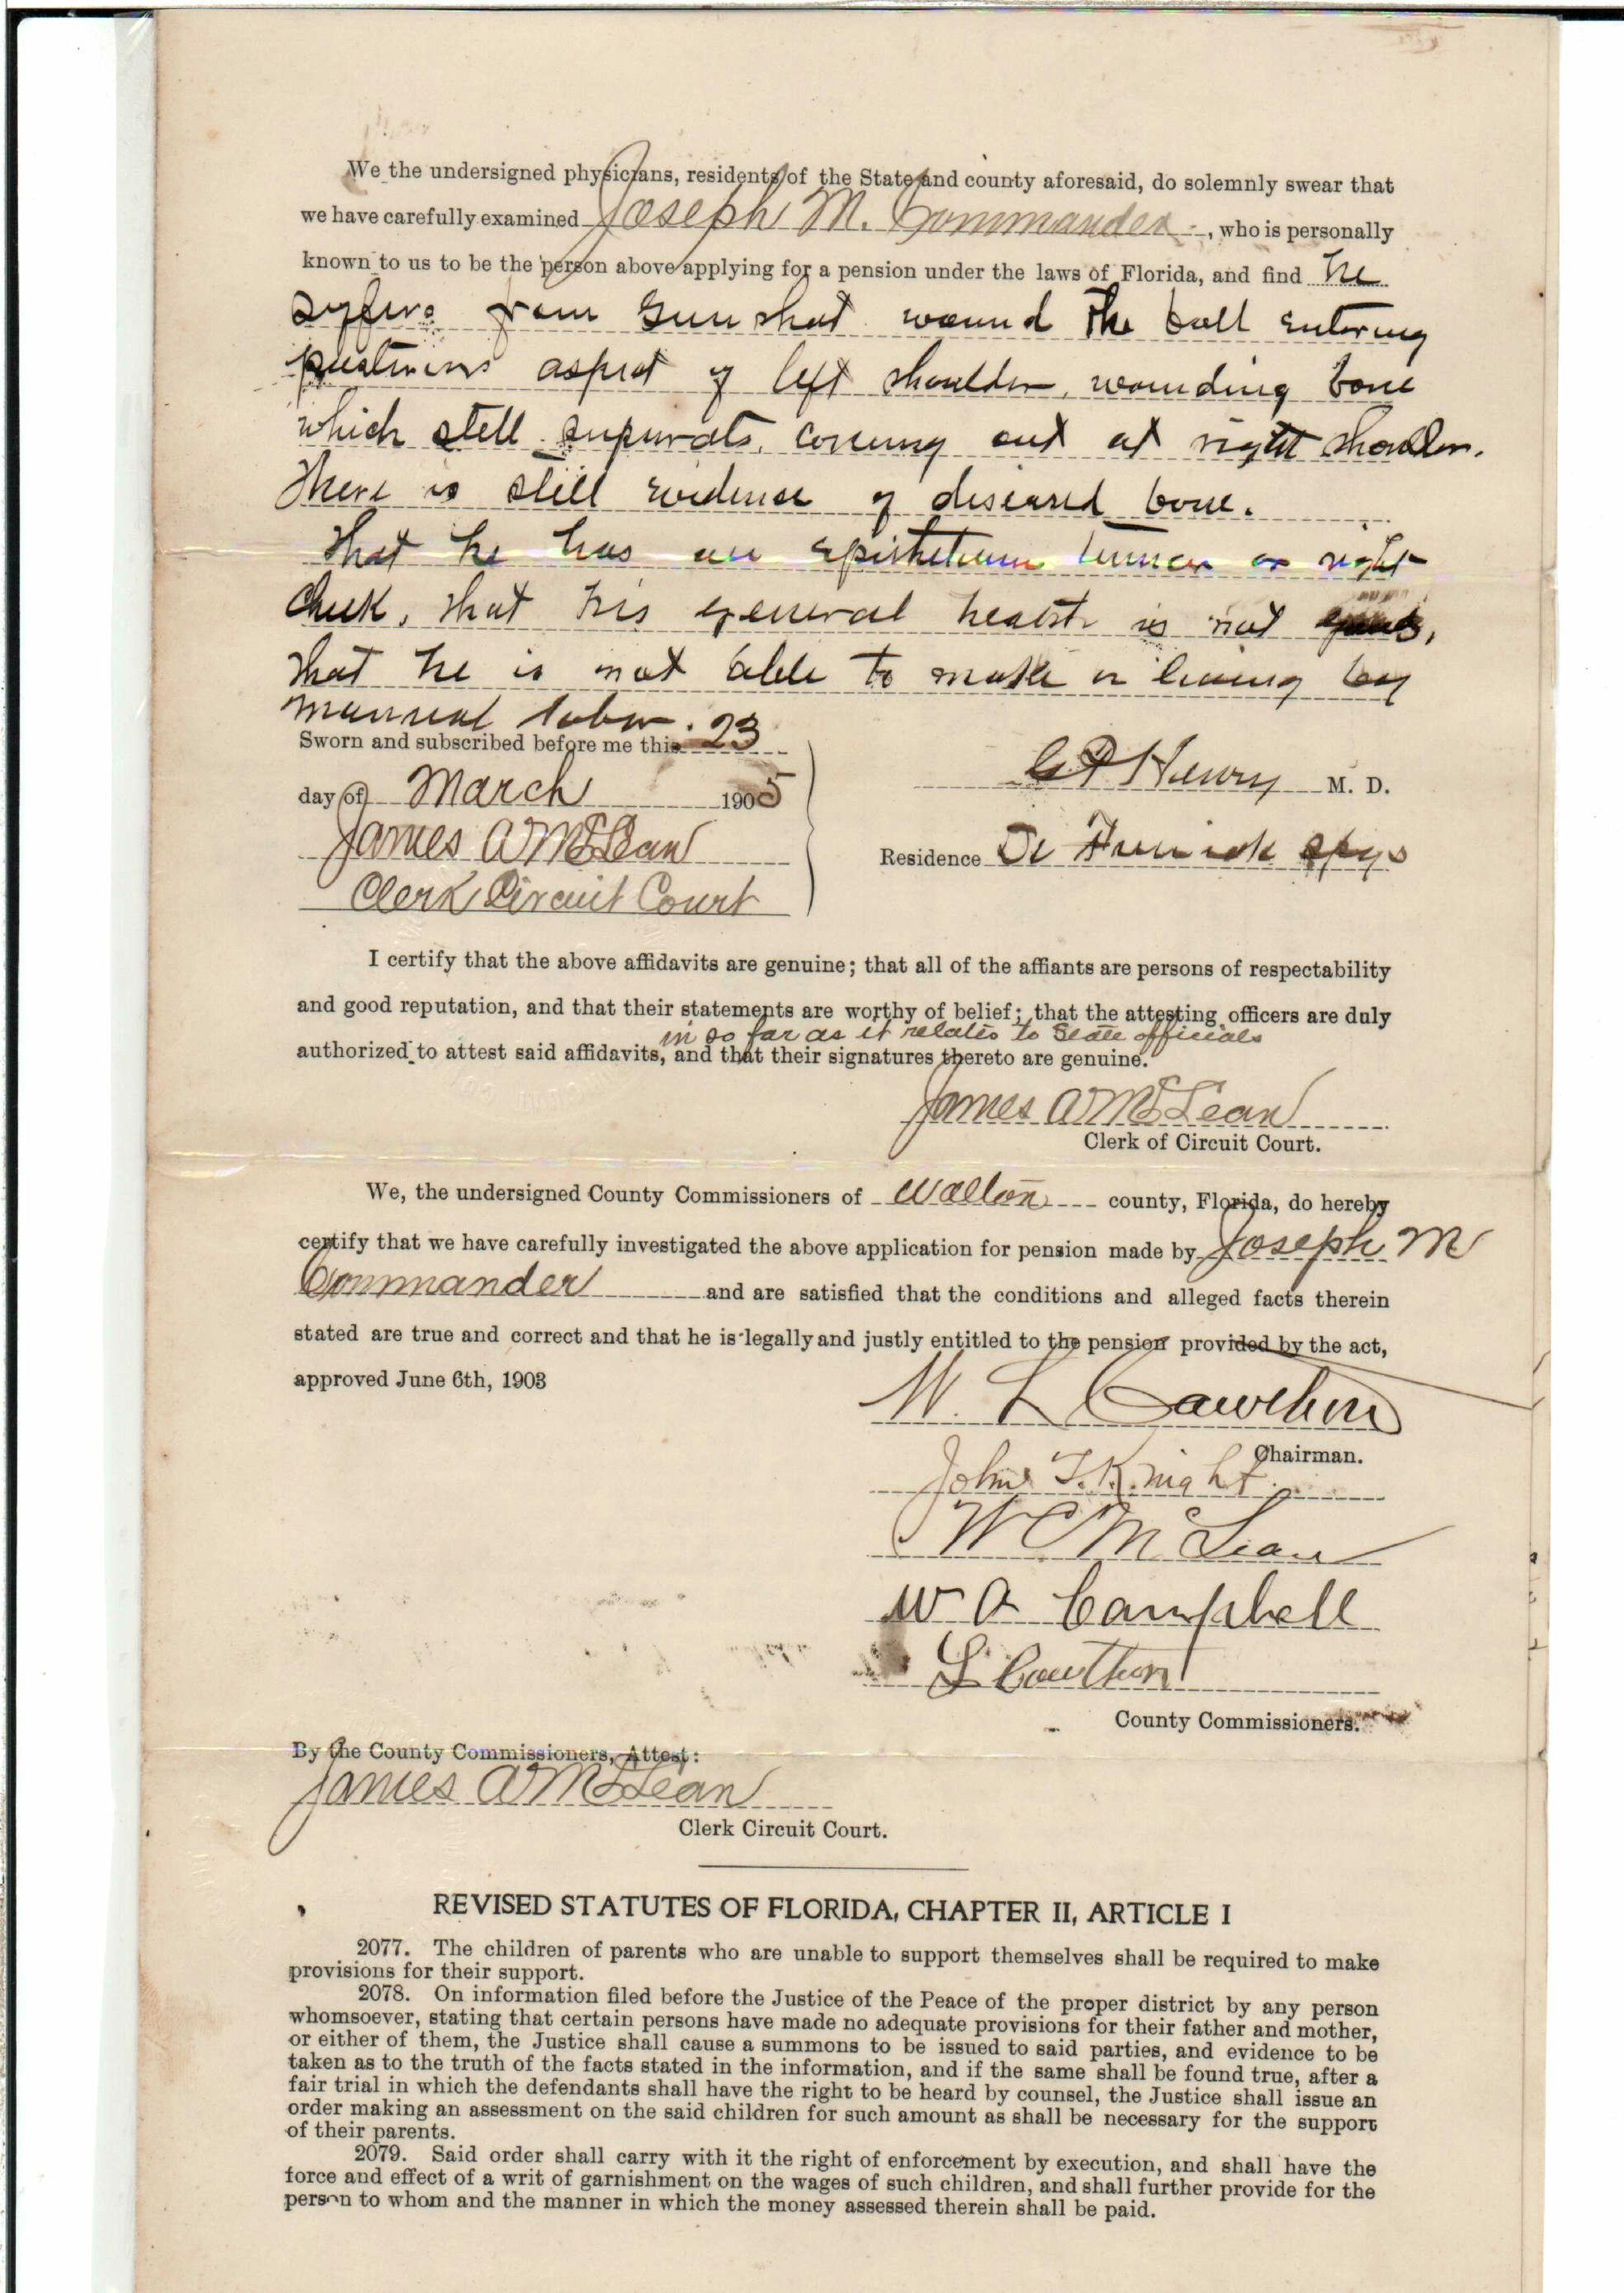 We the undersigned physicians, residents of the State and county aforesaid, do solemnly swear that
we have carefully examined Joseph M. Commander, who is personally
known to us to be the person above applying for a pension under the laws of Florida, and find he
suffers from Gun shot wound the ball entering
posterior aspect of left shoulder, wounding bone
which still supurats, coming out at right shoulder.
There is still evidence of diseased bone.
that he has an tumor on right
cheek, that his general health is not good,
that he is not able to make a living by
manual labor.
Sworn and subscribed before me this 23
day of March 1905
James A McLean
Clerk Circuit Court
Henry M. D.
Residence De Funiak Spgs
I certify that the above affidavits are genuine; that all of the affiants are persons of respectability
and good reputation, and that their statements are worthy of belief; that the attesting officers are duly
in so far as it relates to State officials
authorized to attest said affidavits, and that their signatures thereto are genuine.
James A McLean
Clerk of Circuit Court.
We, the undersigned County Commissioners of Walton county, Florida, do hereby
certify that we have carefully investigated the above application for pension made by Joseph M
Commander and are satisfied that the conditions and alleged facts therein
stated are true and correct and that he is legally and justly entitled to the pension provided by the act,
approved June 6th, 1903
W. L Cawthon
Chairman.
John T. Knight
W C McLean
W A Campbell
L Cawthon
County Commissioners.
By the County Commissioners, Attest:
James A McLean
Clerk Circuit Court.
REVISED STATUTES OF FLORIDA, CHAPTER II, ARTICLE I
2077. The children of parents who are unable to support themselves shall be required to make
provisions for their support.
2078. On information filed before the Justice of the Peace of the proper district by any person
whomsoever, stating that certain persons have made no adequate provisions for their father and mother,
or either of them, the Justice shall cause a summons to be issued to said parties, and evidence to be
taken as to the truth of the facts stated in the information, and if the same shall be found true, after a
fair trial in which the defendants shall have the right to be heard by counsel, the Justice shall issue an
order making an assessment on the said children for such amount as shall be necessary for the support
of their parents.
2079. Said order shall carry with it the right of enforcement by execution, and shall have the
force and effect of a writ of garnishment on the wages of such children, and shall further provide for the
person to whom and the manner in which the money assessed therein shall be paid.